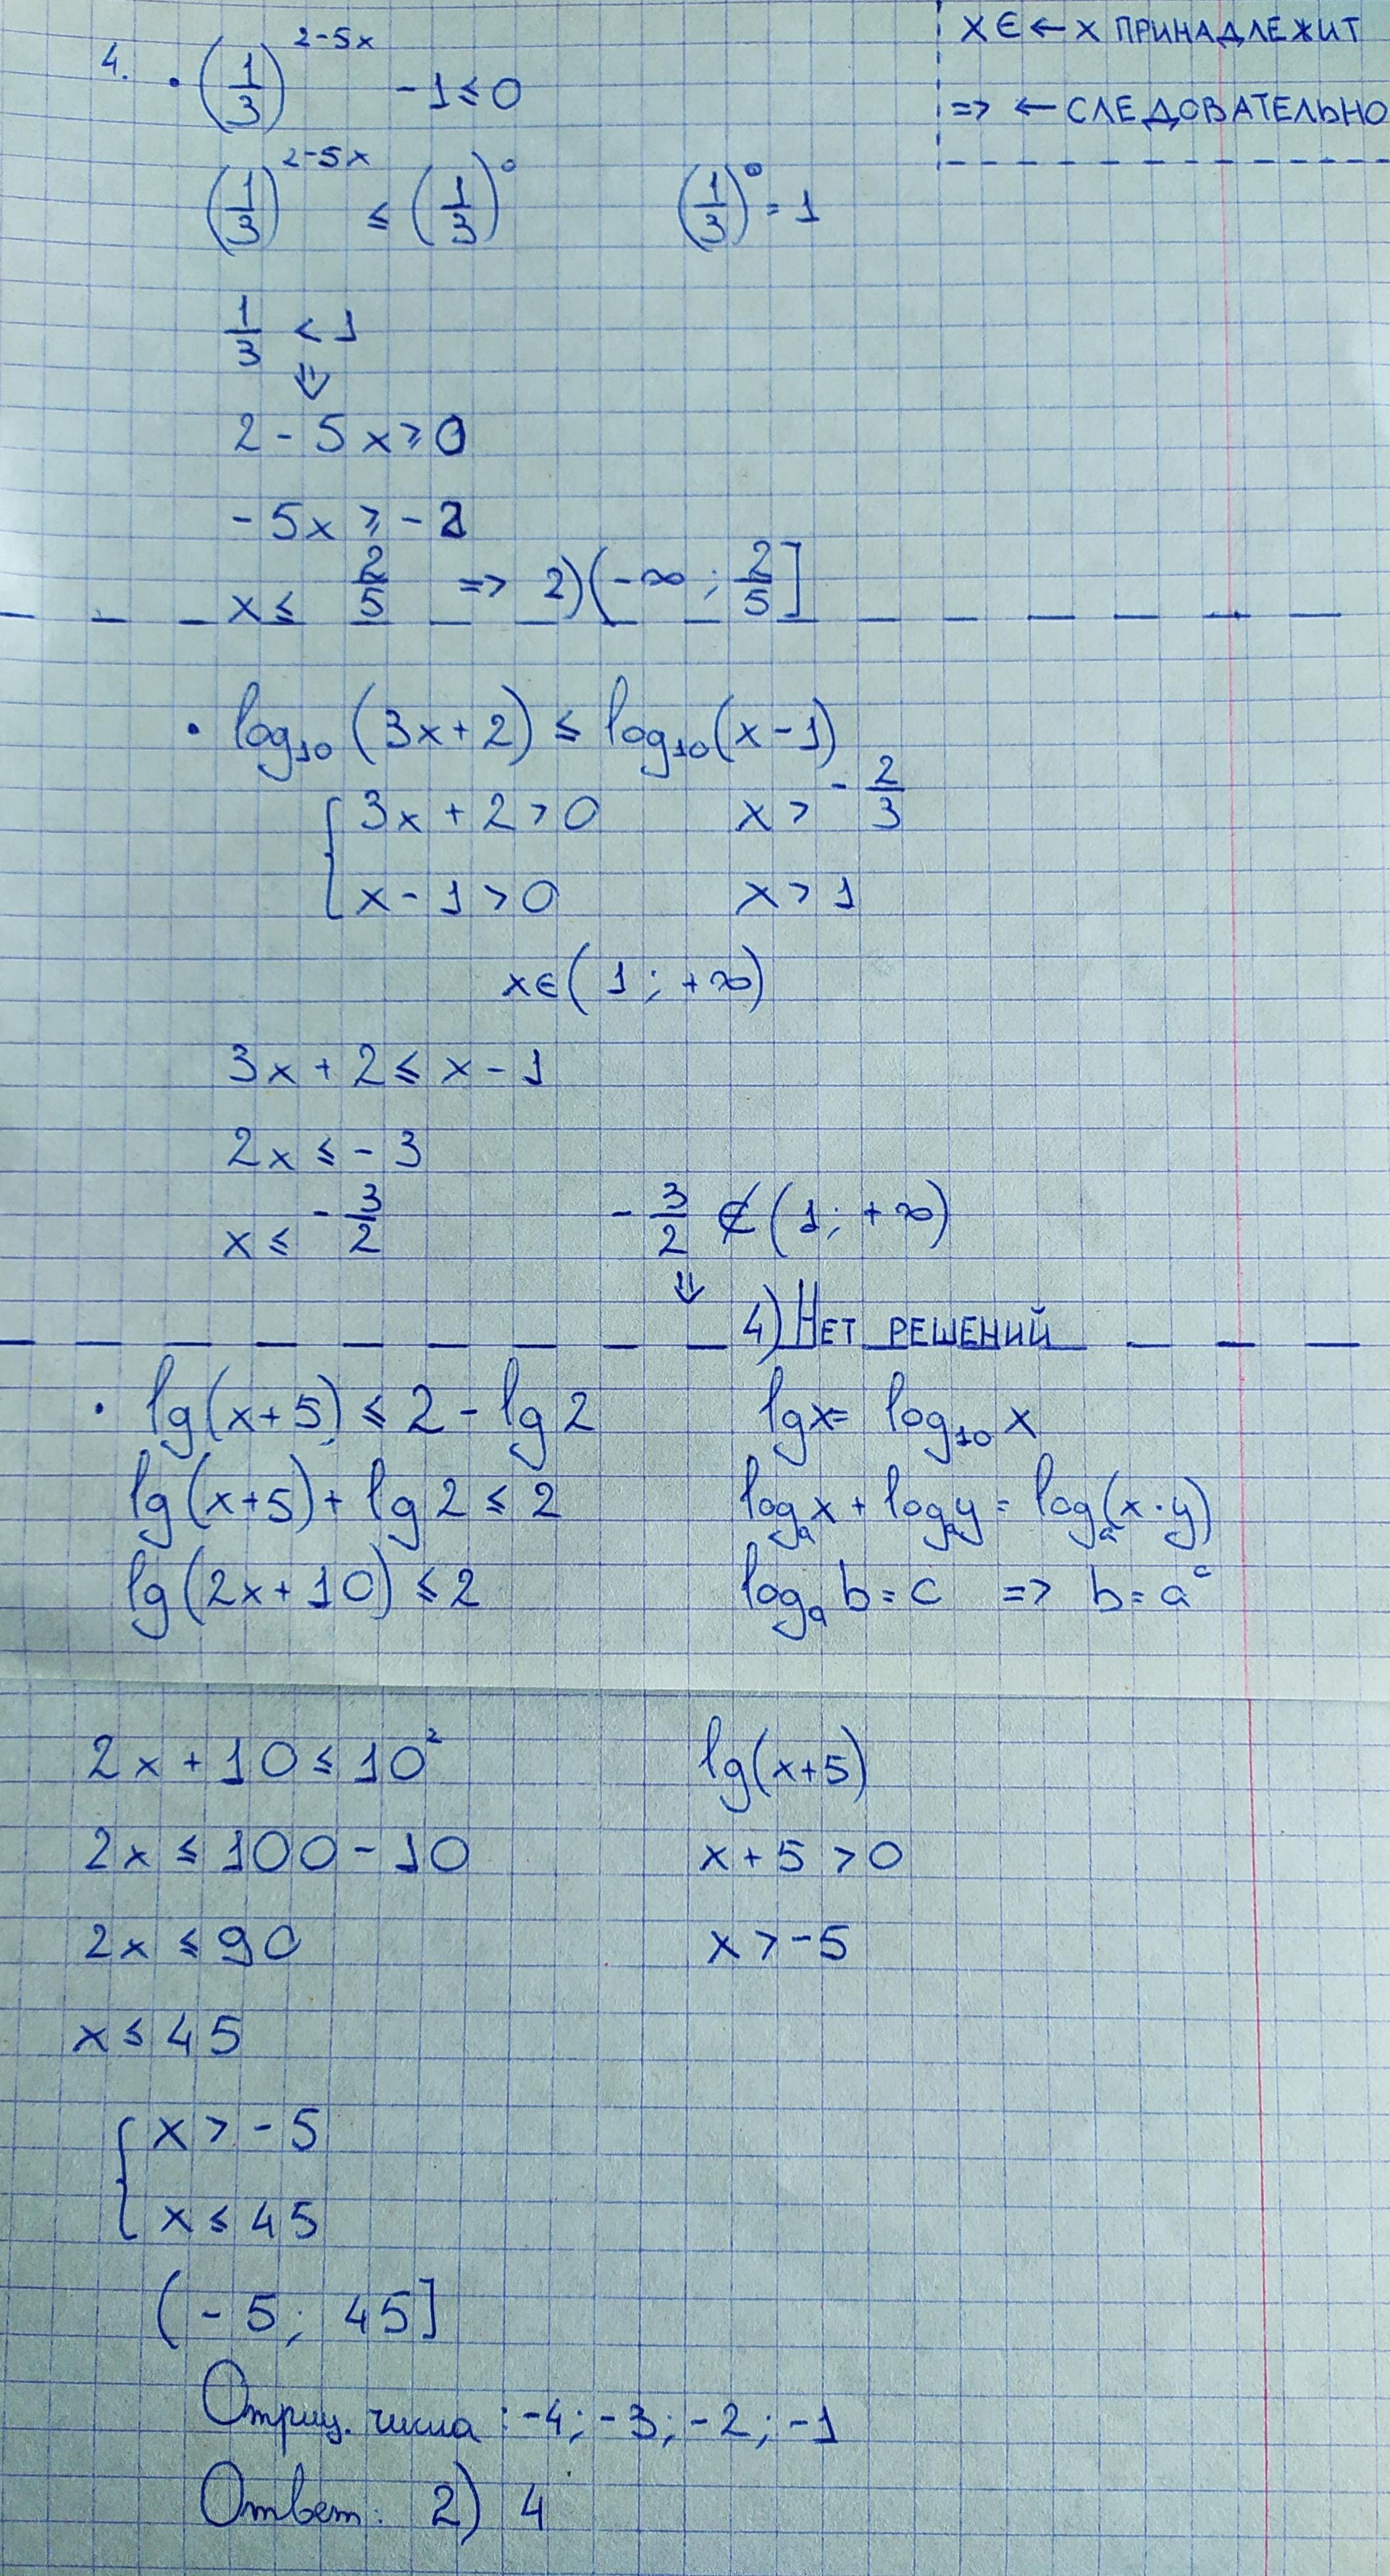 x ∈ ← x ПРИНАДЛЕЖИТ
=> ← СЛЕДОВАТЕЛЬНО
4. • (1/3)^(2-5x) - 1 ≤ 0
(1/3)^(2-5x) ≤ (1/3)^0 (1/3)^0 = 1
1/3 < 1
⇓
2 - 5x ≥ 0
-5x ≥ -2
x ≤ 2/5 => 2) (-∞; 2/5]
• log₁₀(3x+2) ≤ log₁₀(x-1)
{ 3x + 2 > 0 x > -2/3
x - 1 > 0 x > 1
x ∈ (1; +∞)
3x + 2 ≤ x - 1
2x ≤ -3
x ≤ -3/2 -3/2 ∉ (1; +∞)
⇓
4) НЕТ РЕШЕНИЙ
• lg(x+5) ≤ 2 - lg 2 lgx = log₁₀ x
lg(x+5) + lg 2 ≤ 2 logₐx + logₐy = logₐ(x·y)
lg(2x+10) ≤ 2 logₐ b = c => b = a^c
2x + 10 ≤ 10² lg(x+5)
2x ≤ 100 - 10 x + 5 > 0
2x ≤ 90 x > -5
x ≤ 45
{ x > -5
x ≤ 45
(-5; 45]
Отриц. числа: -4; -3; -2; -1
Ответ: 2) 4